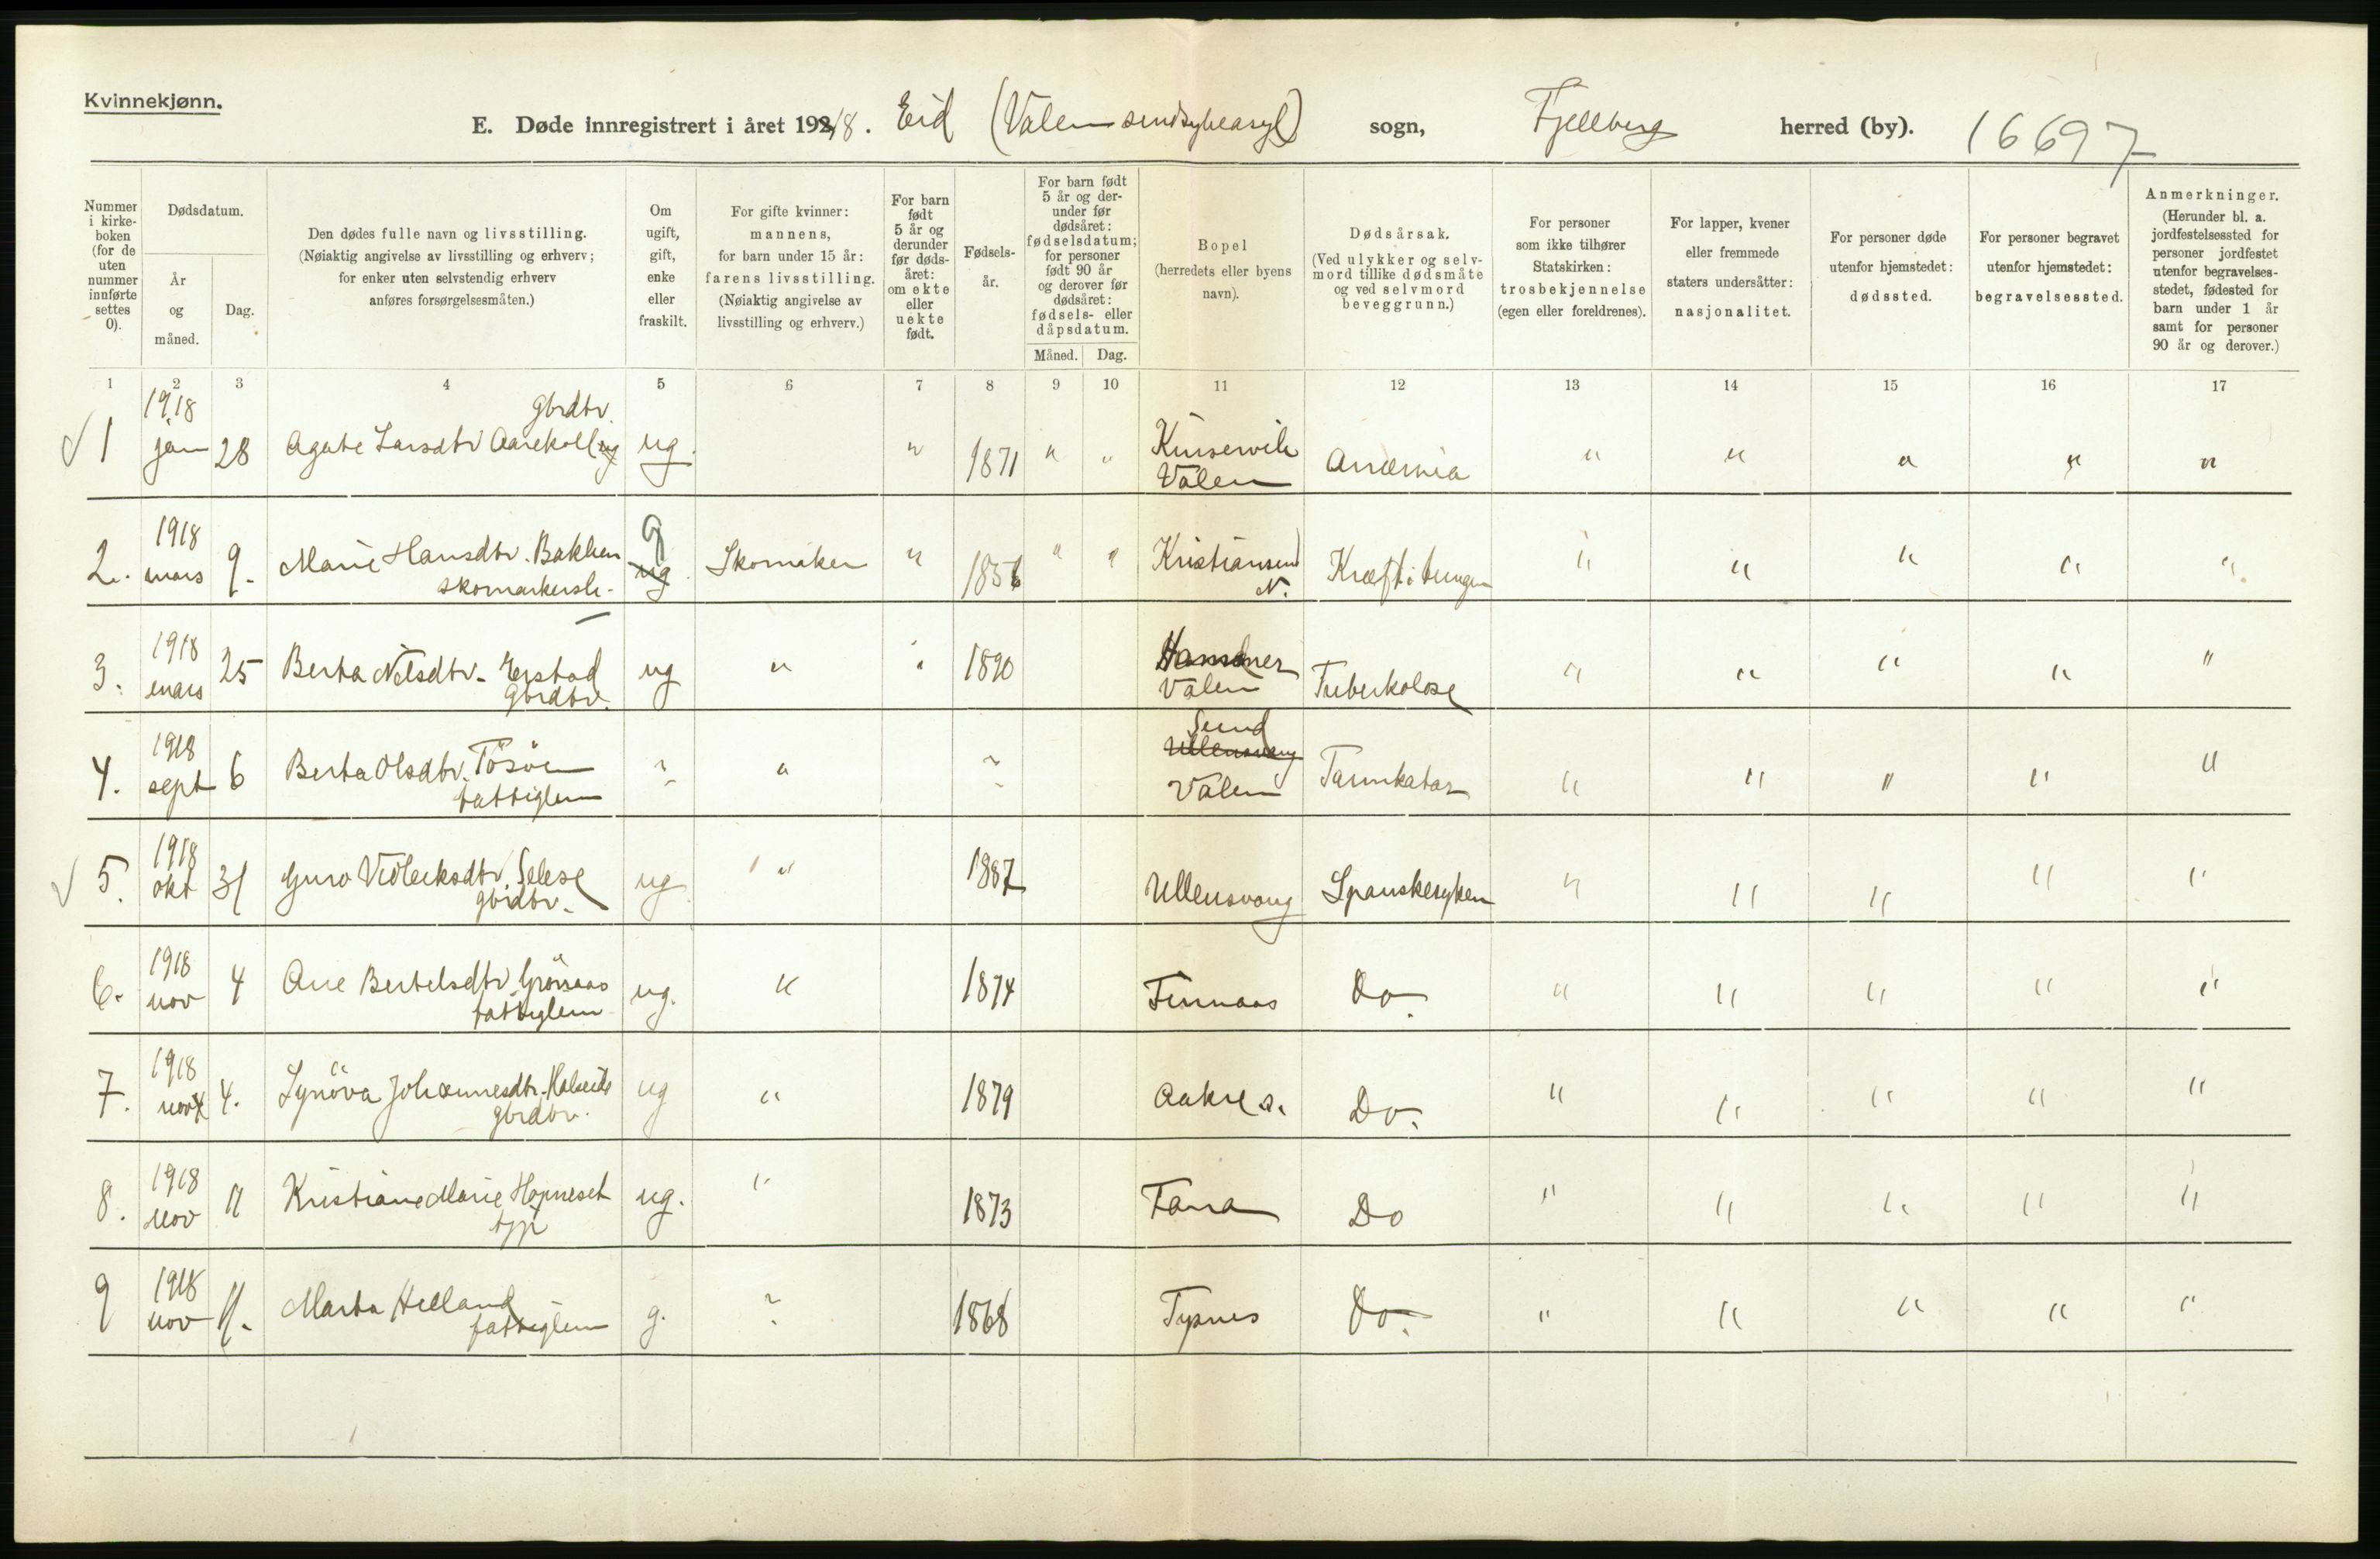 Kvinnekjønn.
E. Døde innregistrert i året 1918. Eid (Valen sindsykeasyl) sogn, Fjellberg herred (by). 16697
Nummer i kirkeboken (for de uten nummer innførte settes 0).
Dødsdatum.
År og måned.
Dag.
Den dødes fulle navn og livsstilling.
(Nøiaktig angivelse av livsstilling og erhverv;
for enker uten selvstendig erhverv
anføres forsørgelsesmåten.)
Om ugift, gift, enke eller fraskilt.
For gifte kvinner: mannens, for barn under 15 år: farens livsstilling. (Nøiaktig angivelse av livsstilling og erhverv.)
For barn født 5 år og derunder før dødsåret: om ekte eller uekte født.
Fødselsår.
For barn født 5 år og derunder før dødsåret: fødselsdatum; for personer født 90 år og derover før dødsåret: fødsels- eller dåpsdatum.
Måned. Dag.
Bopel (herredets eller byens navn).
Dødsårsak. (Ved ulykker og selvmord tillike dødsmåte og ved selvmord beveggrunn.)
For personer som ikke tilhører Statskirken: trosbekjennelse (egen eller foreldrenes).
For lapper, kvener eller fremmede staters undersåtter: nasjonalitet.
For personer døde utenfor hjemstedet: dødssted.
For personer begravet utenfor hjemstedet: begravelsessted.
Anmerkninger. (Herunder bl. a. jordfestelsessted for personer jordfestet utenfor begravelsesstedet, fødested for barn under 1 år samt for personer 90 år og derover.)
1 2 3 4 5 6 7 8 9 10 11 12 13 14 15 16 17
1 1918 jan 28 Agate Larsdtr Aarekoll gbrdtr. ug. " 1871 " " Kinservik Valen Anæmia " " " " "
2. 1918 mars 9. Marie Hansdtr. Bakken skomarkersk. g ug Skomaker " 1856 " " Kristiansund N. Kræft i tungen " " " " "
3. 1918 mars 25 Berta Nilsdtr. gbrdtr. ug " " 1890 Valen Tuberkolose " " " " "
4. 1918 sept 6 Berta Olsdtr. Tösöen fattiglem ? " ? Sund Ullensvang Valen Tarmkatar " " " " "
5. 1918 okt 31 Guro gbrdtr. ug " 1887 Ullensvang Spanskesyken " " " " "
6. 1918 nov 4 Ane Bertelsdtr. fattiglem ug. " 1874 Finnaas Do. " " " " "
7. 1918 nov 4. Synöva Johannesdtr. gbrdtr. ug " 1879 Aakre s. Do. " " " " "
8. 1918 nov 11 Kristiane Marie Hopneset ug. " 1873 Fana Do " " " " "
9 1918 nov 11. Marta Helland fattiglem g. ? 1868 Tysnes Do. " " " " "